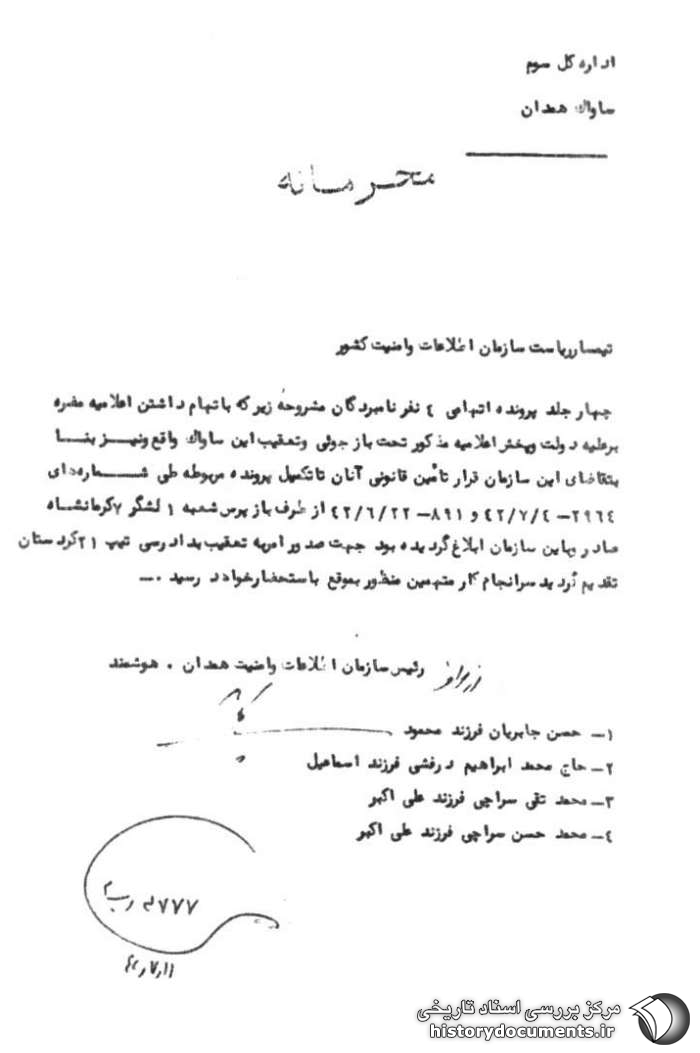 اداره کل سوم
ساواک همدان
محرمانه
تیمسار ریاست سازمان اطلاعات وامنیت کشور
چهار جلد پرونده اتهامی ٤ نفر نامبردگان مشروحه زیر که باتهام داشتن اعلامیه مضره
برعلیه دولت وپخش اعلامیه مذکور تحت بازجوئی وتعقیب این ساواک واقع ونیز بنا
بتقاضای این سازمان قرار تأمین قانونی آنان تا تکمیل پرونده مربوطه طی شمارههای
٢٩٦٤– ٤٢/٧/٤ و ٨٩١– ٤٢/٦/٢٢ از طرف بازپرس شعبه ١ لشگر ٧ کرمانشاه
صادر وباین سازمان ابلاغ گردیده بود جهت صدور امریه تعقیب بدادرسی تیپ ٢١ کردستان
تقدیم گردید سرانجام کار متهمین منظور بموقع باستحضار خواهد رسید .–
رئیس سازمان اطلاعات وامنیت همدان . هوشمند
١– حسن جابریان فرزند محمود
٢– حاج محمد ابراهیم درفشی فرزند اسماعیل
٣– محمد تقی سراجی فرزند علی اکبر
٤– محمد حسن سراجی فرزند علی اکبر
٧٧٧
مرکز بررسی اسناد تاریخی
historydocuments.ir